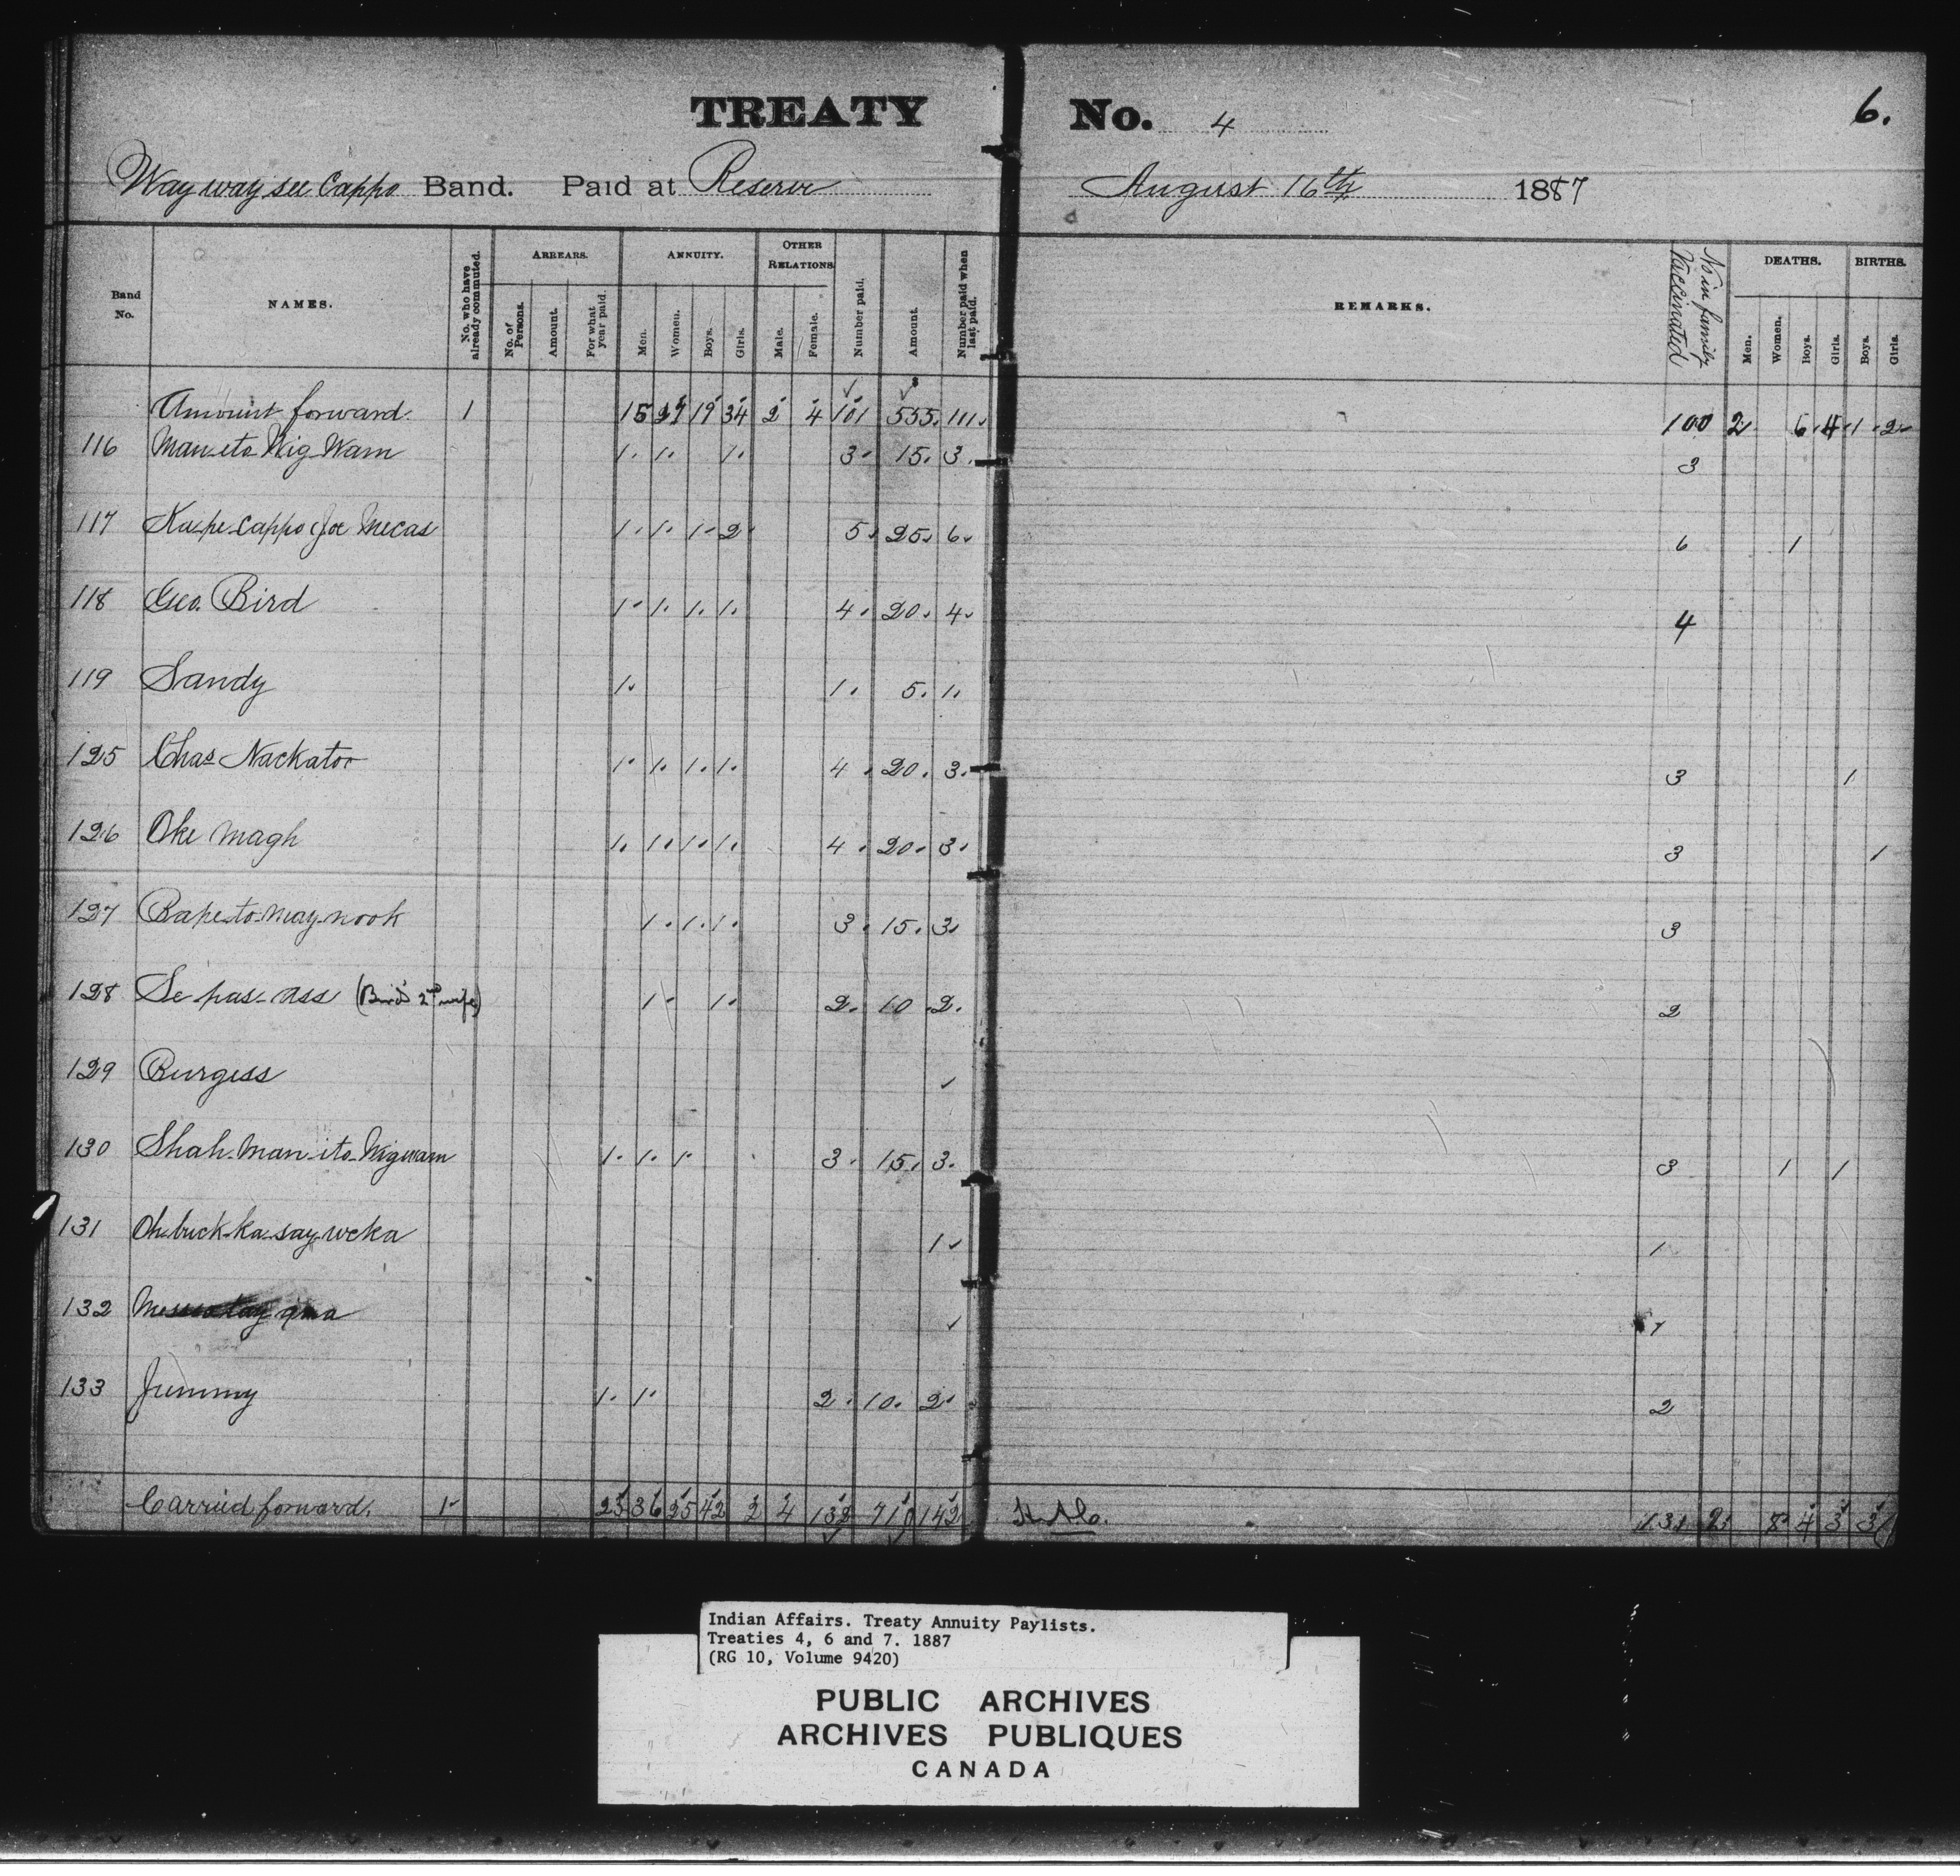 TREATY No. 4 6.
Way way see Cappo Band. Paid at Reserve August 16th 1887
Band No. NAMES. No. who have already commuted. ARREARS. No. of Persons. Amount. For what year paid. ANNUITY. Men. Women. Boys. Girls. OTHER RELATIONS Male. Female. Number paid. Amount. Number paid when last paid. REMARKS. No in family Vaccinated DEATHS. Men. Women. Boys. Girls. BIRTHS. Boys. Girls.
Amount forward 1 15 27 19 34 2 4 101 555. 111. 100 2 6 4 1 2
116 Man-eto Wig Wam 1. 1. 1. 3. 15. 3. 3
117 Ka-pe-cappo Joe Mecas 1. 1. 1. 2. 5. 25. 6. 6 1
118 Geo. Bird 1. 1. 1. 1. 4. 20. 4. 4
119 Sandy 1. 1. 5. 1.
125 Chas Nackatoo 1. 1. 1. 1. 4. 20. 3. 3 1
126 Oke Magh 1. 1. 1. 1. 4. 20. 3. 3 1
127 Bape-to-may-nook 1. 1. 1. 3. 15. 3. 3
128 Se-pas-ass (Bird's 2nd wife) 1. 1. 2. 10 2. 2
129 Burgess
130 Shah-Man-ito-Wigwam 1. 1. 1. 3. 15. 3. 3 1 1
131 Oh-buck-ka-say-weka 1 1
132
133 Jummy 1. 1. 2. 10. 2. 2
Carried forward. 1 23 36 25 42 2 4 132 710 142 131 2 8 4 3 3
Indian Affairs. Treaty Annuity Paylists.
Treaties 4, 6 and 7. 1887
(RG 10, Volume 9420)
PUBLIC ARCHIVES
ARCHIVES PUBLIQUES
CANADA